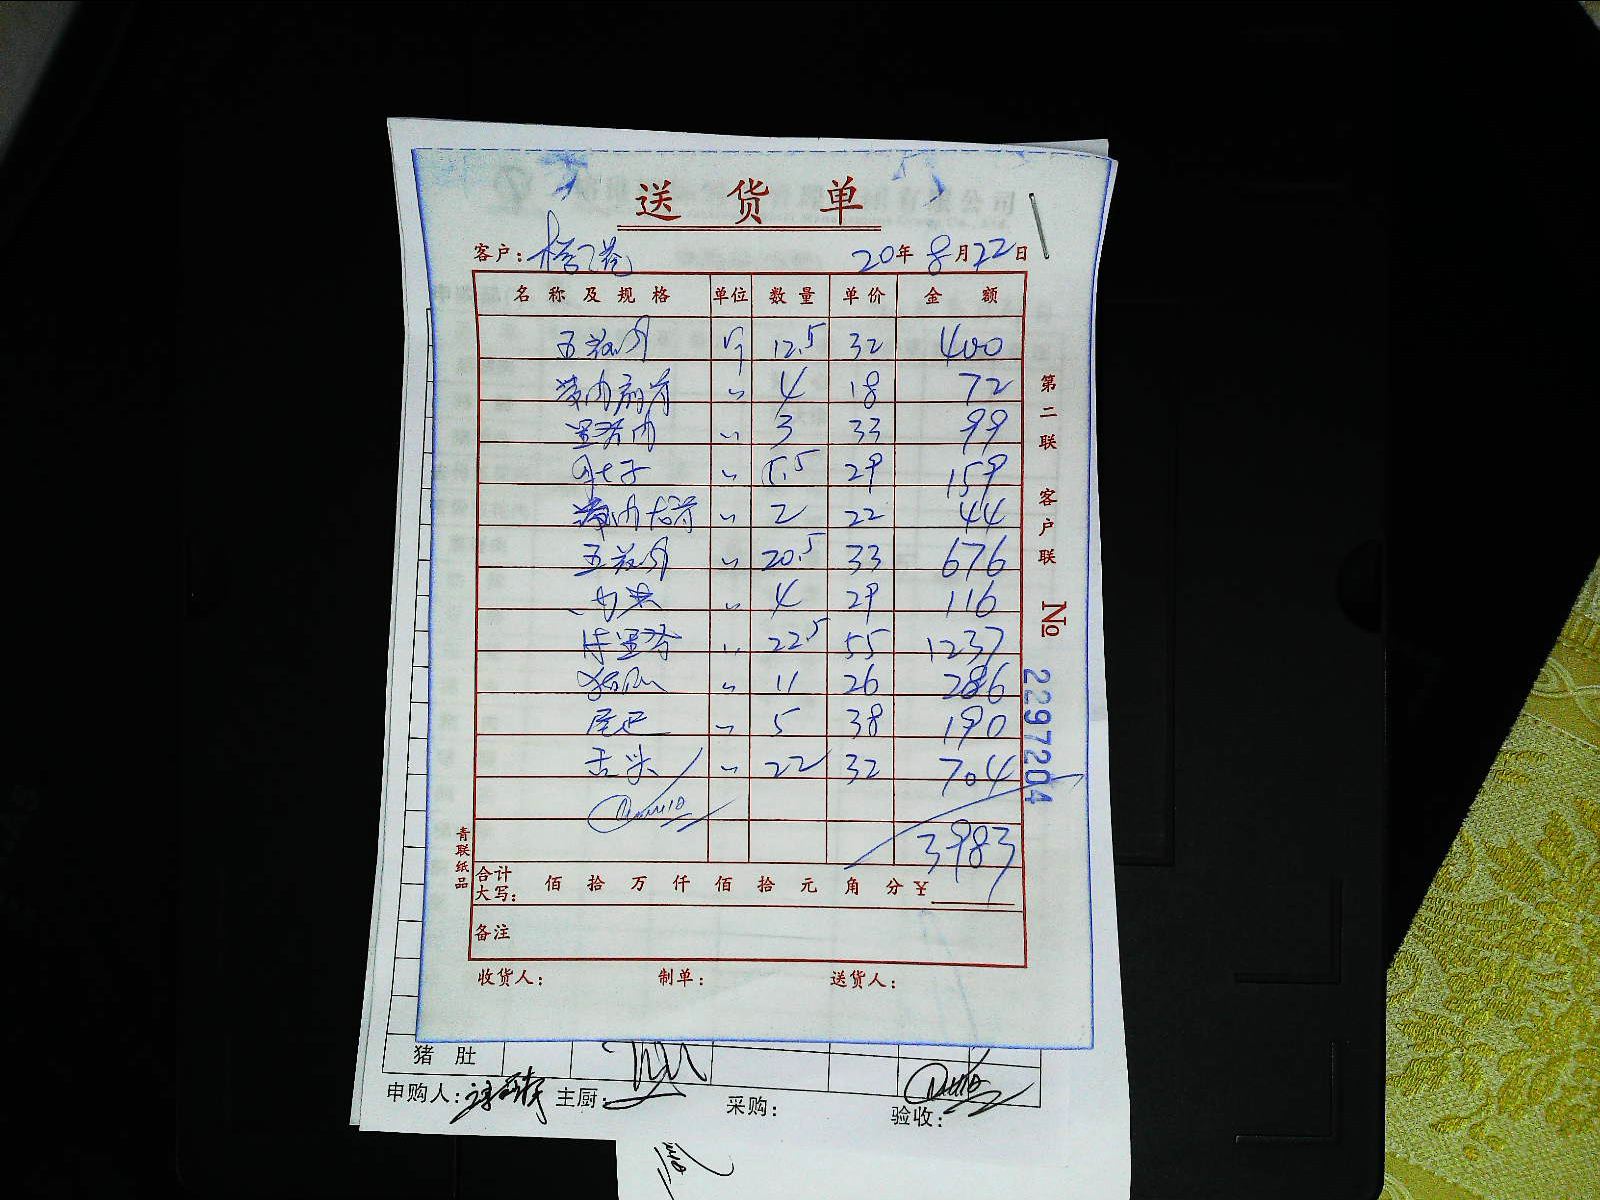 送货单
客户： 20年8月22日
名称及规格 单位 数量 单价 金额
五花肉 斤 12.5 32 400
带肉扇骨 〃 4 18 72
里脊肉 〃 3 33 99
肚子 〃 5.5 29 159
带肉龙骨 〃 2 22 44
五花肉 〃 20.5 33 676
肉头 〃 4 29 116
里脊 〃 22.5 55 1237
〃 11 26 286
尾巴 〃 5 38 190
舌头 〃 22 32 704
3983
合计大写： 佰 拾 万 仟 佰 拾 元 角 分 ￥
备注
收货人： 制单： 送货人：
第二联 客户联
№ 2297204
青联纸品
猪肚
申购人： 主厨： 采购： 验收：